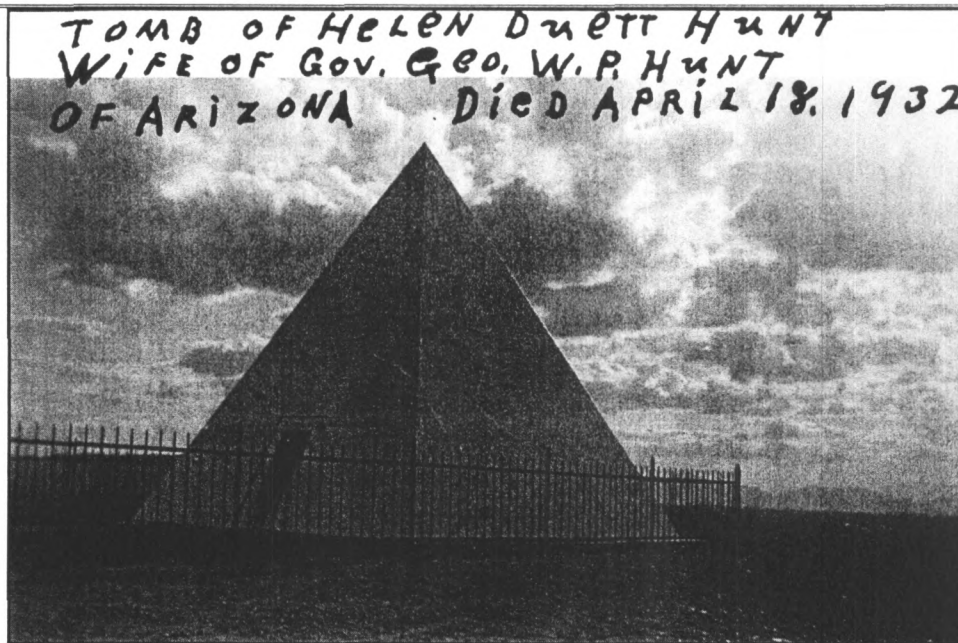 TOMB OF HELEN DUETT HUNT
WIFE OF GOV. GEO. W.P. HUNT
OF ARIZONA DIED APRIL 18. 1932